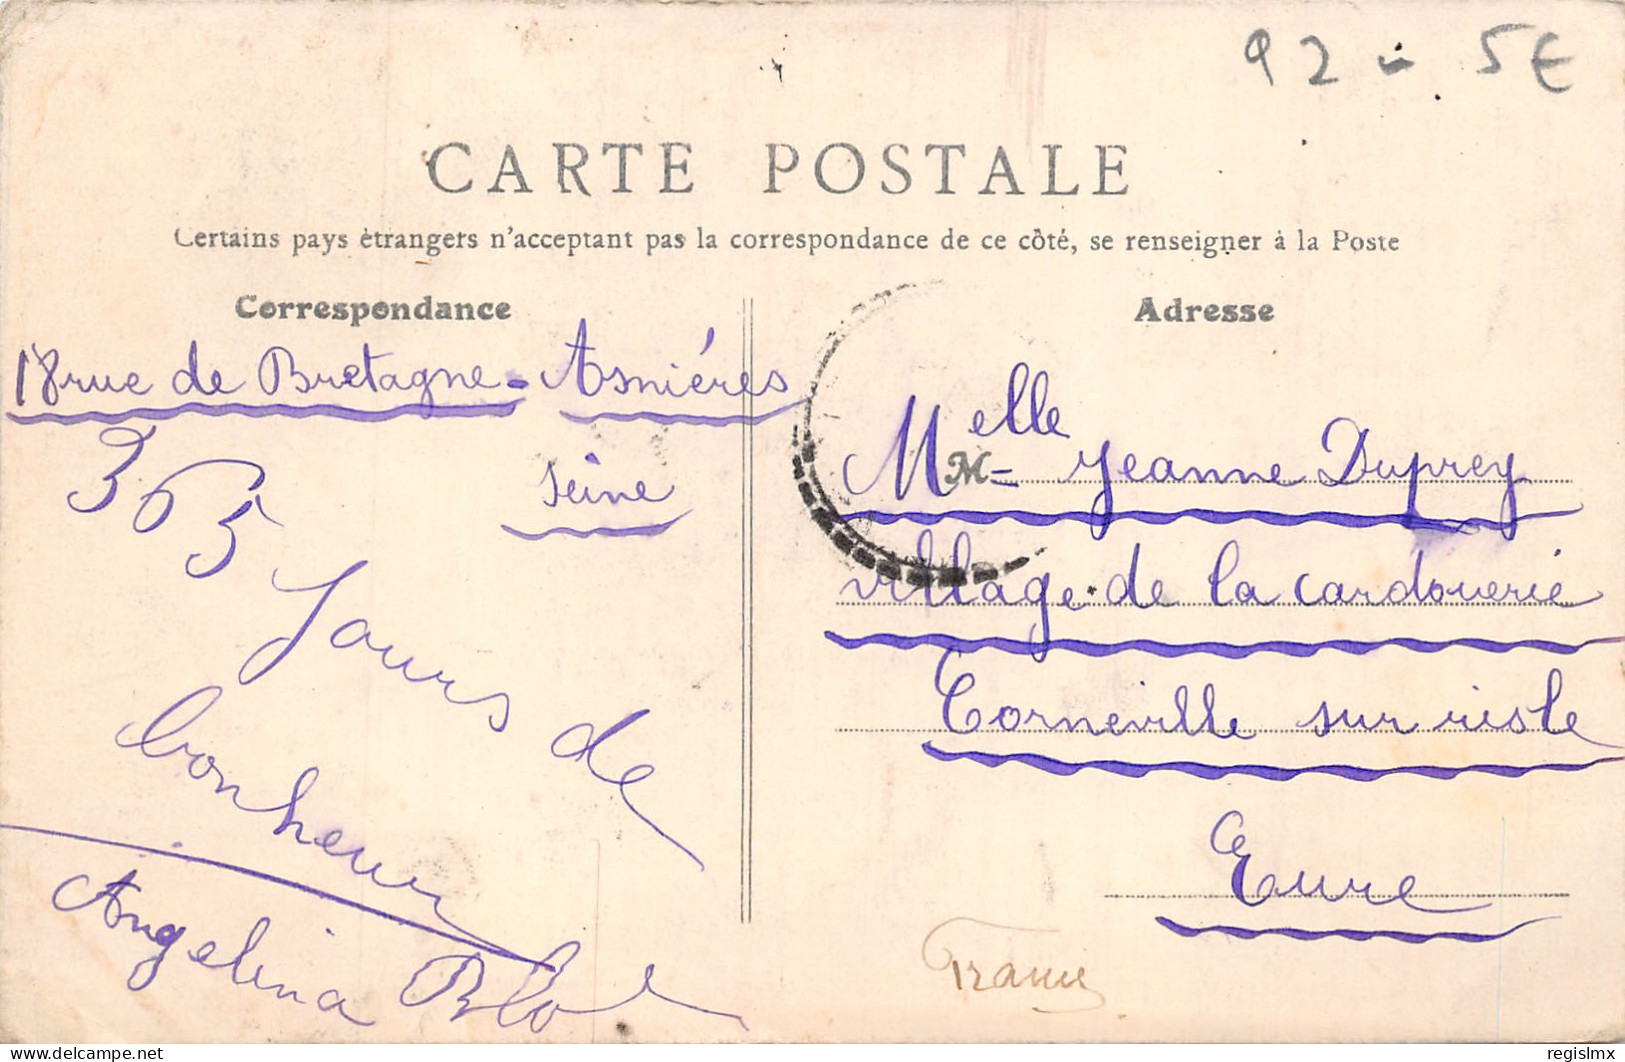 92 - 5€
CARTE POSTALE
Certains pays étrangers n'acceptant pas la correspondance de ce côté, se renseigner à la Poste
Correspondance
18 rue de Bretagne - Asnières
Seine
365
Jours de
bonheur
Angelina Blot
Adresse
Melle M= Jeanne Duprey
village de la cardouerie
Corneville sur risle
Eure
France
12:28:06
regislmx